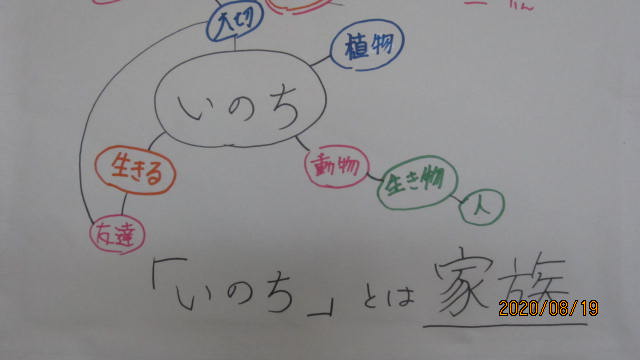 大切
植物
いのち
生きる
動物
生き物
人
友達
「いのち」とは 家族
2020/08/19